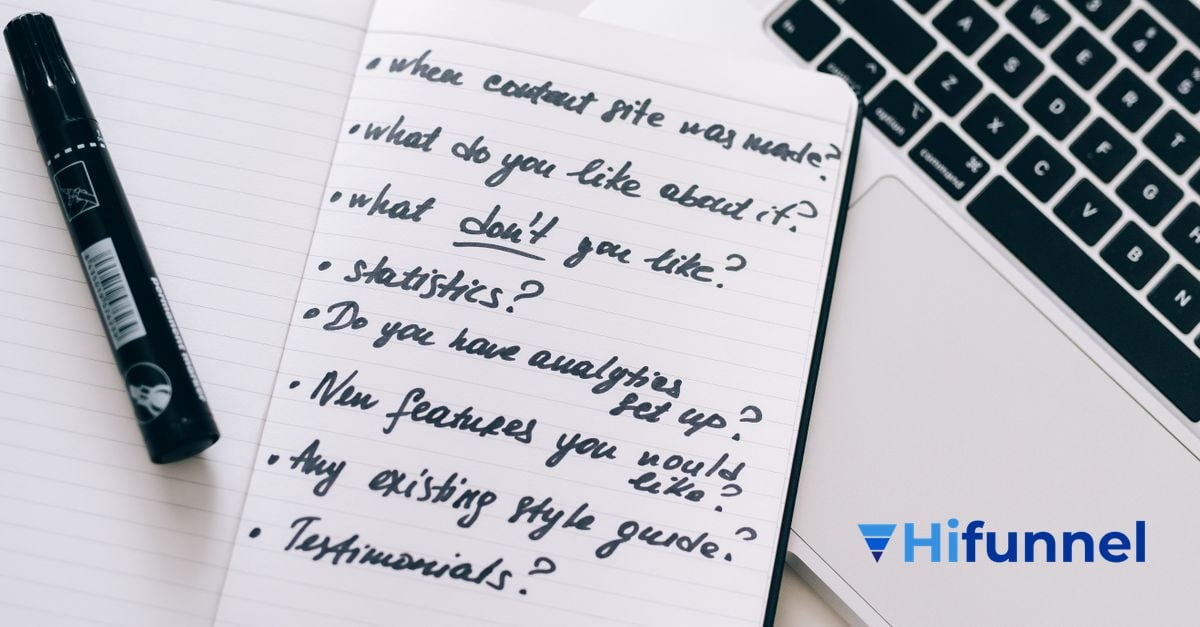 • when content site was made?
• what do you like about it?
• what don't you like?
• statistics?
• Do you have analytics
set up?
• New features you would
like?
• Any existing style guide?
• Testimonials?
permanent marker
Hifunnel
A
W
S
E
4
Z
D
R
5
X
F
T
C
G
V
H
B
N
fn
control
option
command